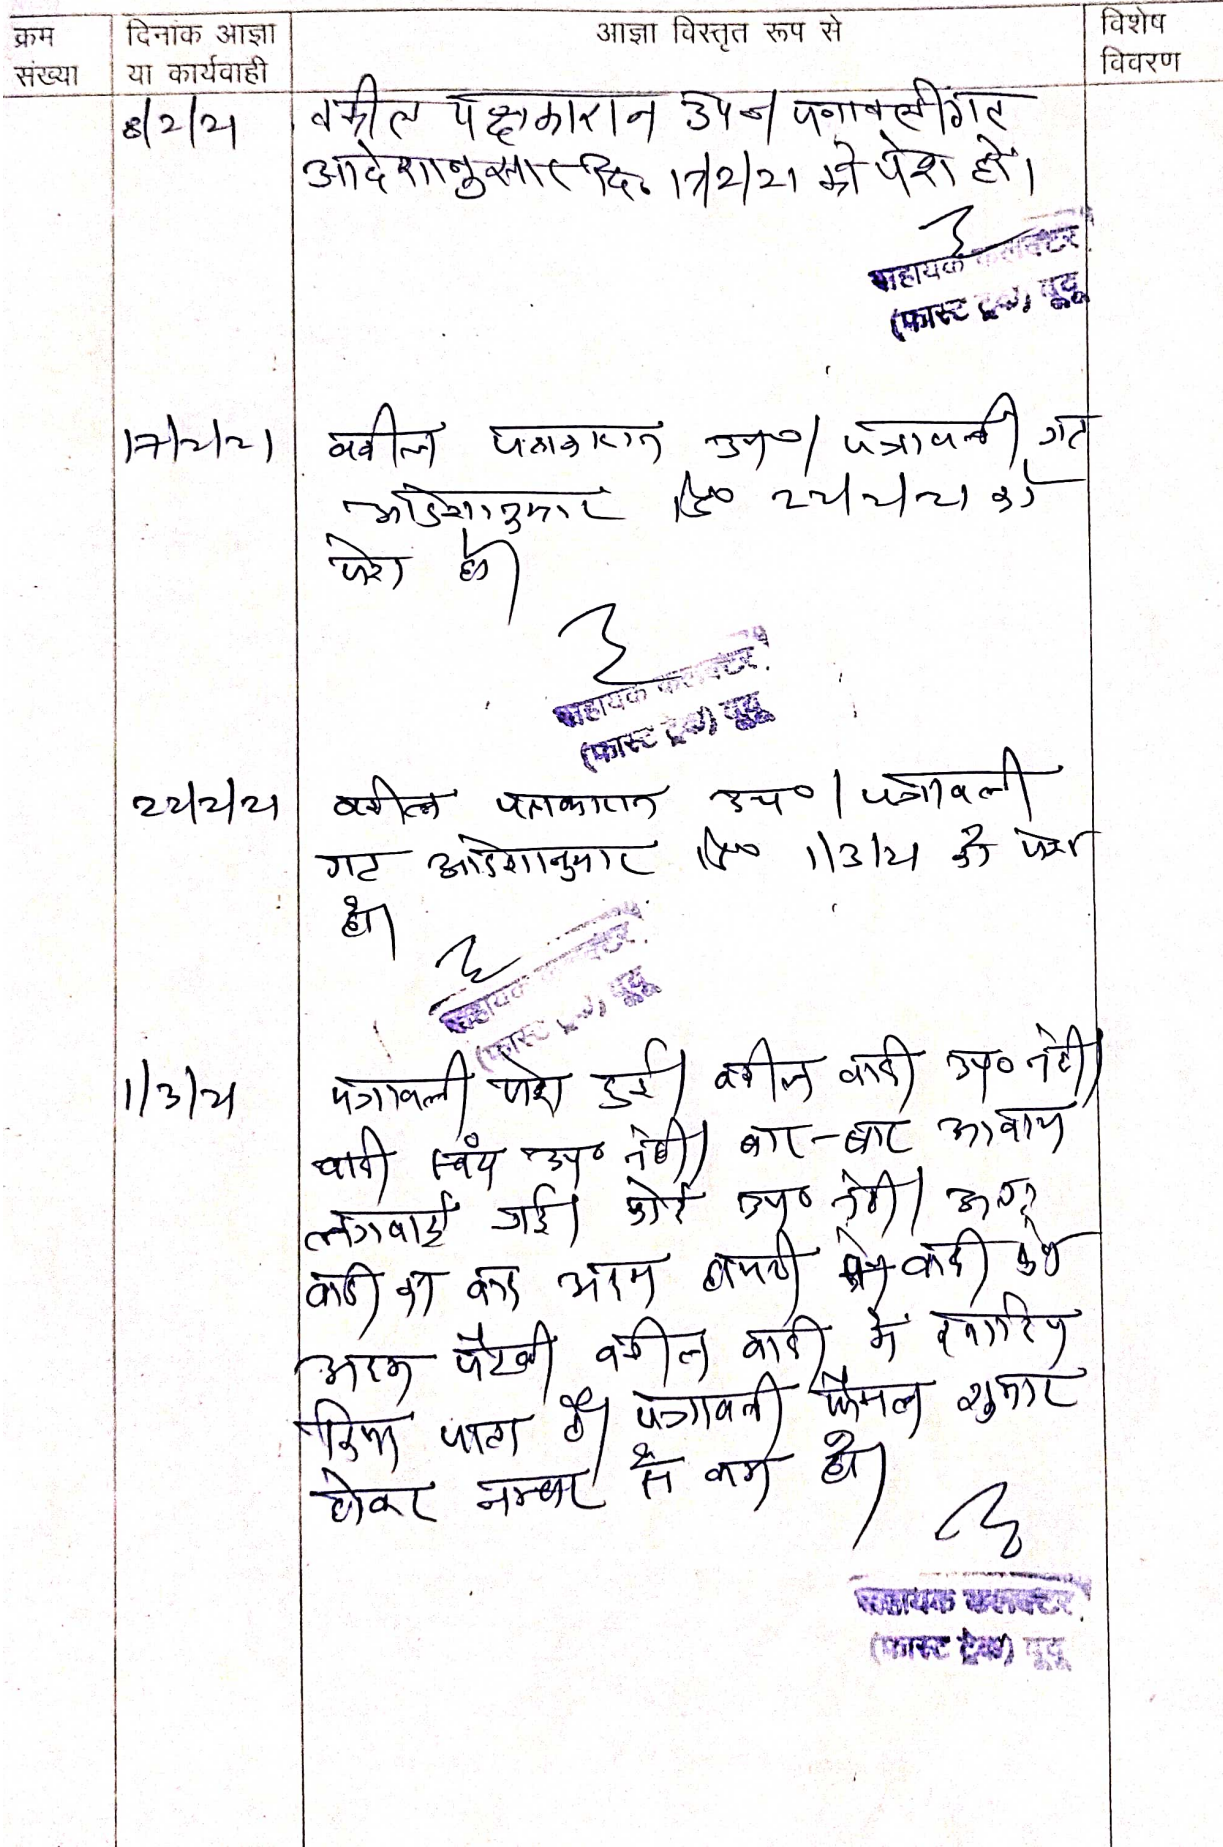 क्रम संख्या
दिनांक आज्ञा या कार्यवाही
आज्ञा विस्तृत रूप से
विशेष विवरण
8/2/21
वकील पक्षकारान उप० पत्रावली गत
आदेशानुसार दि० 17/2/21 को पेश हो।
सहायक कलक्टर
(फास्ट ट्रैक) दूदू
17/2/21
वकील पक्षकारान उप०। पत्रावली गत
आदेशानुसार दि० 22/2/21 को
पेश हो।
सहायक कलक्टर
(फास्ट ट्रैक) दूदू
22/2/21
वकील पक्षकारान उप०। पत्रावली
गत आदेशानुसार दि० 1/3/21 को पेश
हो।
सहायक कलक्टर
(फास्ट ट्रैक) दूदू
1/3/21
पत्रावली पेश हुई। वकील वादी उप० नही।
वादी स्वंय उप० नही। बार-बार आवाज
लगवाई गई। कोई उप० नही। अतः
वादी का वाद अदम हाजरी वादी
अदम पैरवी वकील वादी में खारिज
किया जाता है। पत्रावली फैसल शुमार
होकर नम्बर से कम हो।
सहायक कलक्टर
(फास्ट ट्रैक) दूदू